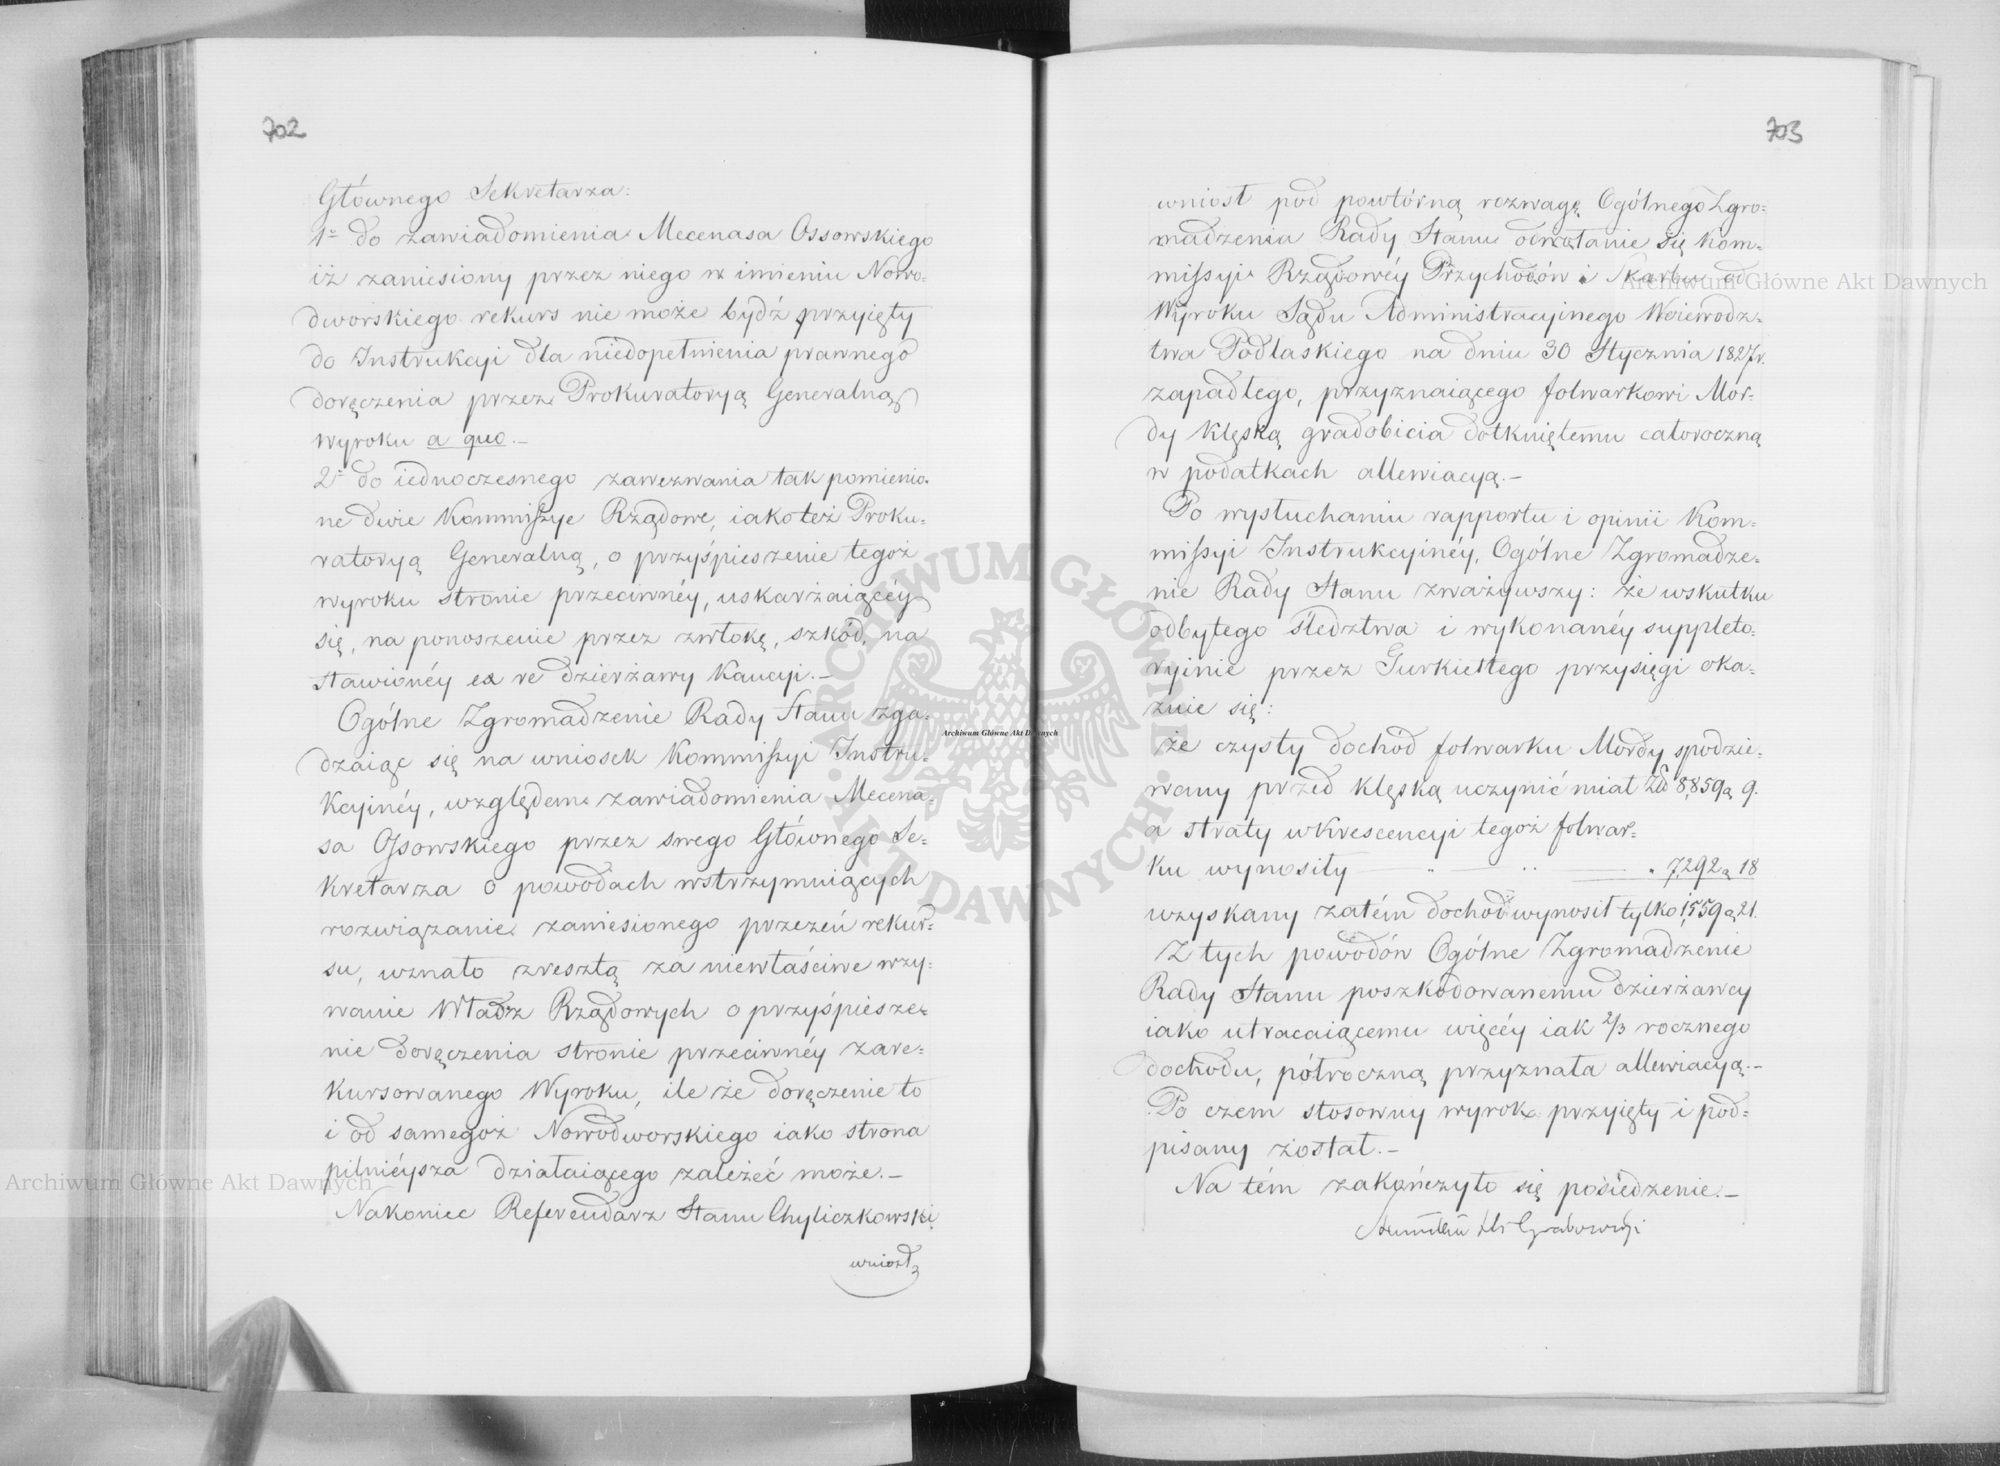 702
Głównego Sekretarza:
1° do zawiadomienia Mecenasa Ossowskiego
iż zaniesiony przez niego w imieniu Nowo-
dworskiego rekurs nie może bydź przyięty
do Instrukcji dla niedopełnienia prawnego
doręczenia przez Prokuratoryą Generalną
wyroku a quo.—
2° do iednoczesnego zawezwania tak pomienio-
ne dwie Kommissye Rządowe, iako też Proku-
ratoryą Generalną, o przyśpieszenie tegoż
wyroku stronie przeciwnéy, uskarżaiącéy
się, na ponoszenie przez zwłokę, szkód, na
stawionéy ex re dzierżawy Kaucyi.—
Ogólne Zgromadzenie Rady Stanu zga-
dzaiąc się na wniosek Kommissyi Instru-
kcyinéy, względem zawiadomienia Mecena-
sa Ossowskiego przez swego Głównego Se-
kretarza o powodach wstrzymuiących
rozwiązanie zaniesionego przezeń rekur-
su, uznało zresztą za niewłaściwe wzy-
wanie Władz Rządowych o przyśpiesze-
nie doręczenia stronie przeciwnéy zare-
kursowanego Wyroku, ile że doręczenie to
i od samegoż Nowodworskiego iako strona
pilniéysza działaiącego zależeć może.—
Nakoniec Referendarz Stanu Chyliczkowski
wniósł
703
wniosł pod powtórną rozwagę Ogólnego Zgro-
madzenia Rady Stanu odwołanie się Kom-
missyi Rządowéy Przychodów i Skarbu od
Wyroku Sądu Administracyinego Woiewodz-
twa Podlaskiego na dniu 30 Stycznia 1827 r.
zapadłego, przyznaiącego folwarkowi Mor-
dy klęską gradobicia dotkniętemu całoroczną
w podatkach allewiacyą.—
Po wysłuchaniu rapportu i opinii Kom-
missyi Instrukcyinéy, Ogólne Zgromadze-
nie Rady Stanu zważywszy: że wskutku
odbytego śledztwa i wykonanéy suppleto-
ryinie przez Gurkiettego przysięgi oka-
zuie się:
że czysty dochod folwarku Mordy spodzie-
wany przed klęską uczynić miał Złł 8,859 g 9.
a straty w Krescencyi tegoż folwar-
ku wynosiły — " — " — " 7,292 g 18
uzyskany zatém dochod wynosił tylko 1,559 g 21.
Z tych powodów Ogólne Zgromadzenie
Rady Stanu poszkodowanemu dzierżawcy
iako utracaiącemu więcéy iak 2/3 rocznego
dochodu, półroczną przyznała allewiacyą.—
Po czem stosowny wyrok przyięty i pod-
pisany został.—
Na tém zakończyło się posiedzenie.—
Grabowski
Archiwum Główne Akt Dawnych
Archiwum Główne Akt Dawnych
Archiwum Główne Akt Dawnych
ARCHIWUM GŁÓWNE AKT DAWNYCH